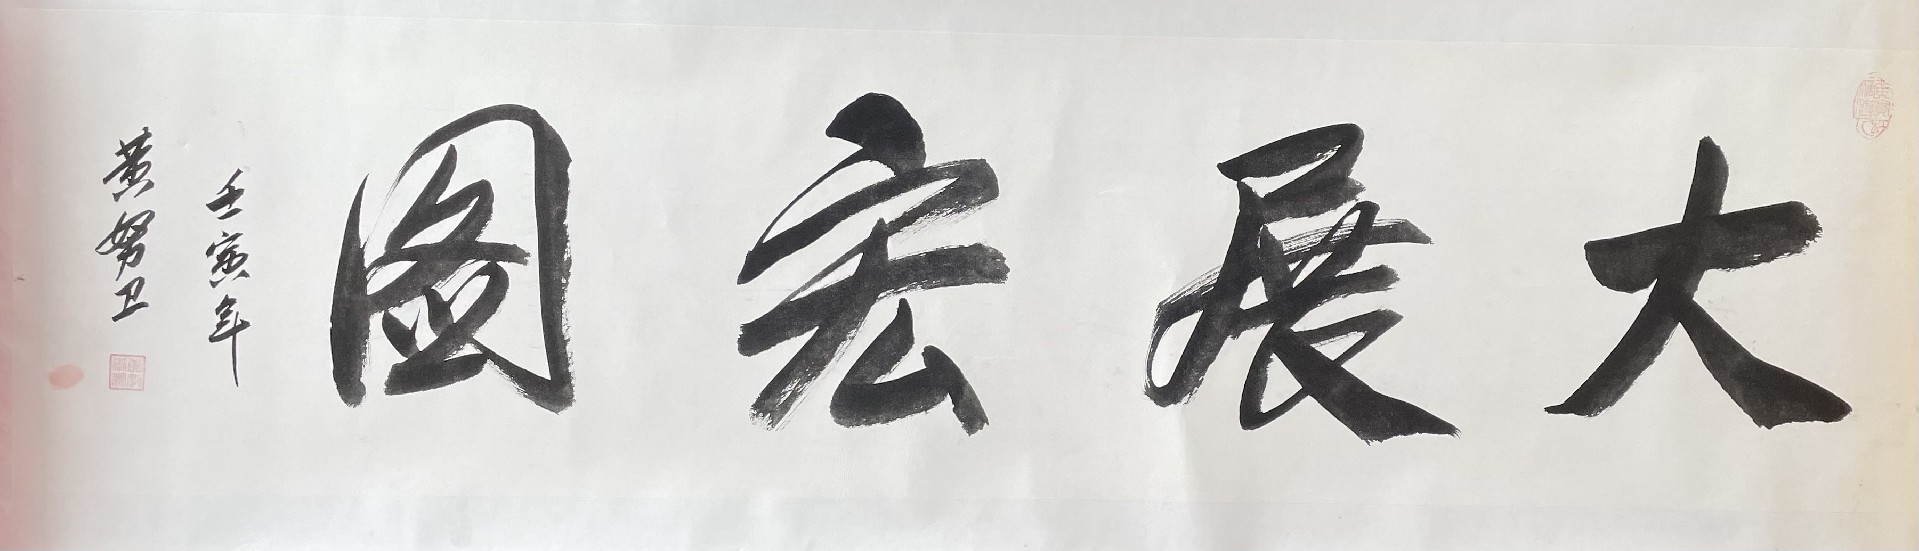 大展宏图
壬寅年
黄努卫